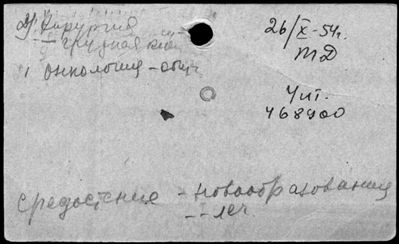 Хирургия
– грудная
1 онкология – общ
26/X-54г.
тД
Чит.
468400
средостение – новообразования
– " – леч.